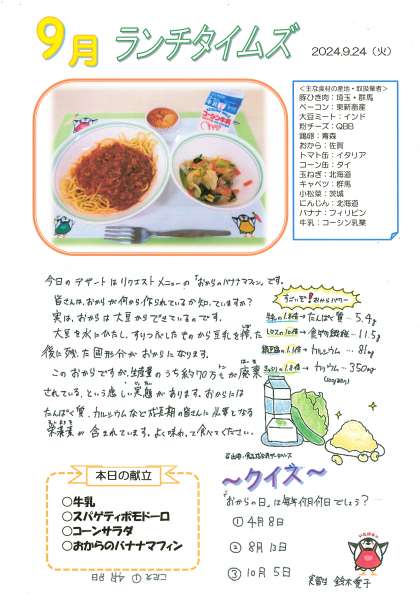 9月 ランチタイムズ
2024.9.24(火)
<主な食材の産地・取扱業者>
豚ひき肉:埼玉・群馬
ベーコン:東新畜産
大豆ミート:インド
粉チーズ:QBB
鶏卵:青森
おから:佐賀
トマト缶:イタリア
コーン缶:タイ
玉ねぎ:北海道
キャベツ:群馬
小松菜:茨城
にんじん:北海道
バナナ:フィリピン
牛乳:コーシン乳業
今日のデザートはリクエストメニューの「おからのバナナマフィン」です。
皆さんは、おからが何から作られているか知っていますか?
実は、おからは大豆からできているのです。
大豆を水にひたし、すりつぶしたものから豆乳を搾った
後に残った固形分がおからになります。
このおからですが、生産量のうち約70万tが廃棄
されている、という悲しい実態があります。おからには
たんぱく質、カルシウムなど成長期の皆さんに必要となる
栄養素が含まれています。よく味わって食べてください。
すごいぞ!おからパワー
たんぱく質…5.4g
レタスの10倍→食物繊維…11.5g
カルシウム…81mg
カリウム…350mg
本日の献立
○牛乳
○スパゲティポモドーロ
○コーンサラダ
○おからのバナナマフィン
~クイズ~
「おからの日」は毎年何月何日でしょう?
①4月8日
②8月13日
③10月5日
鈴木愛子
こたえ① 4月8日